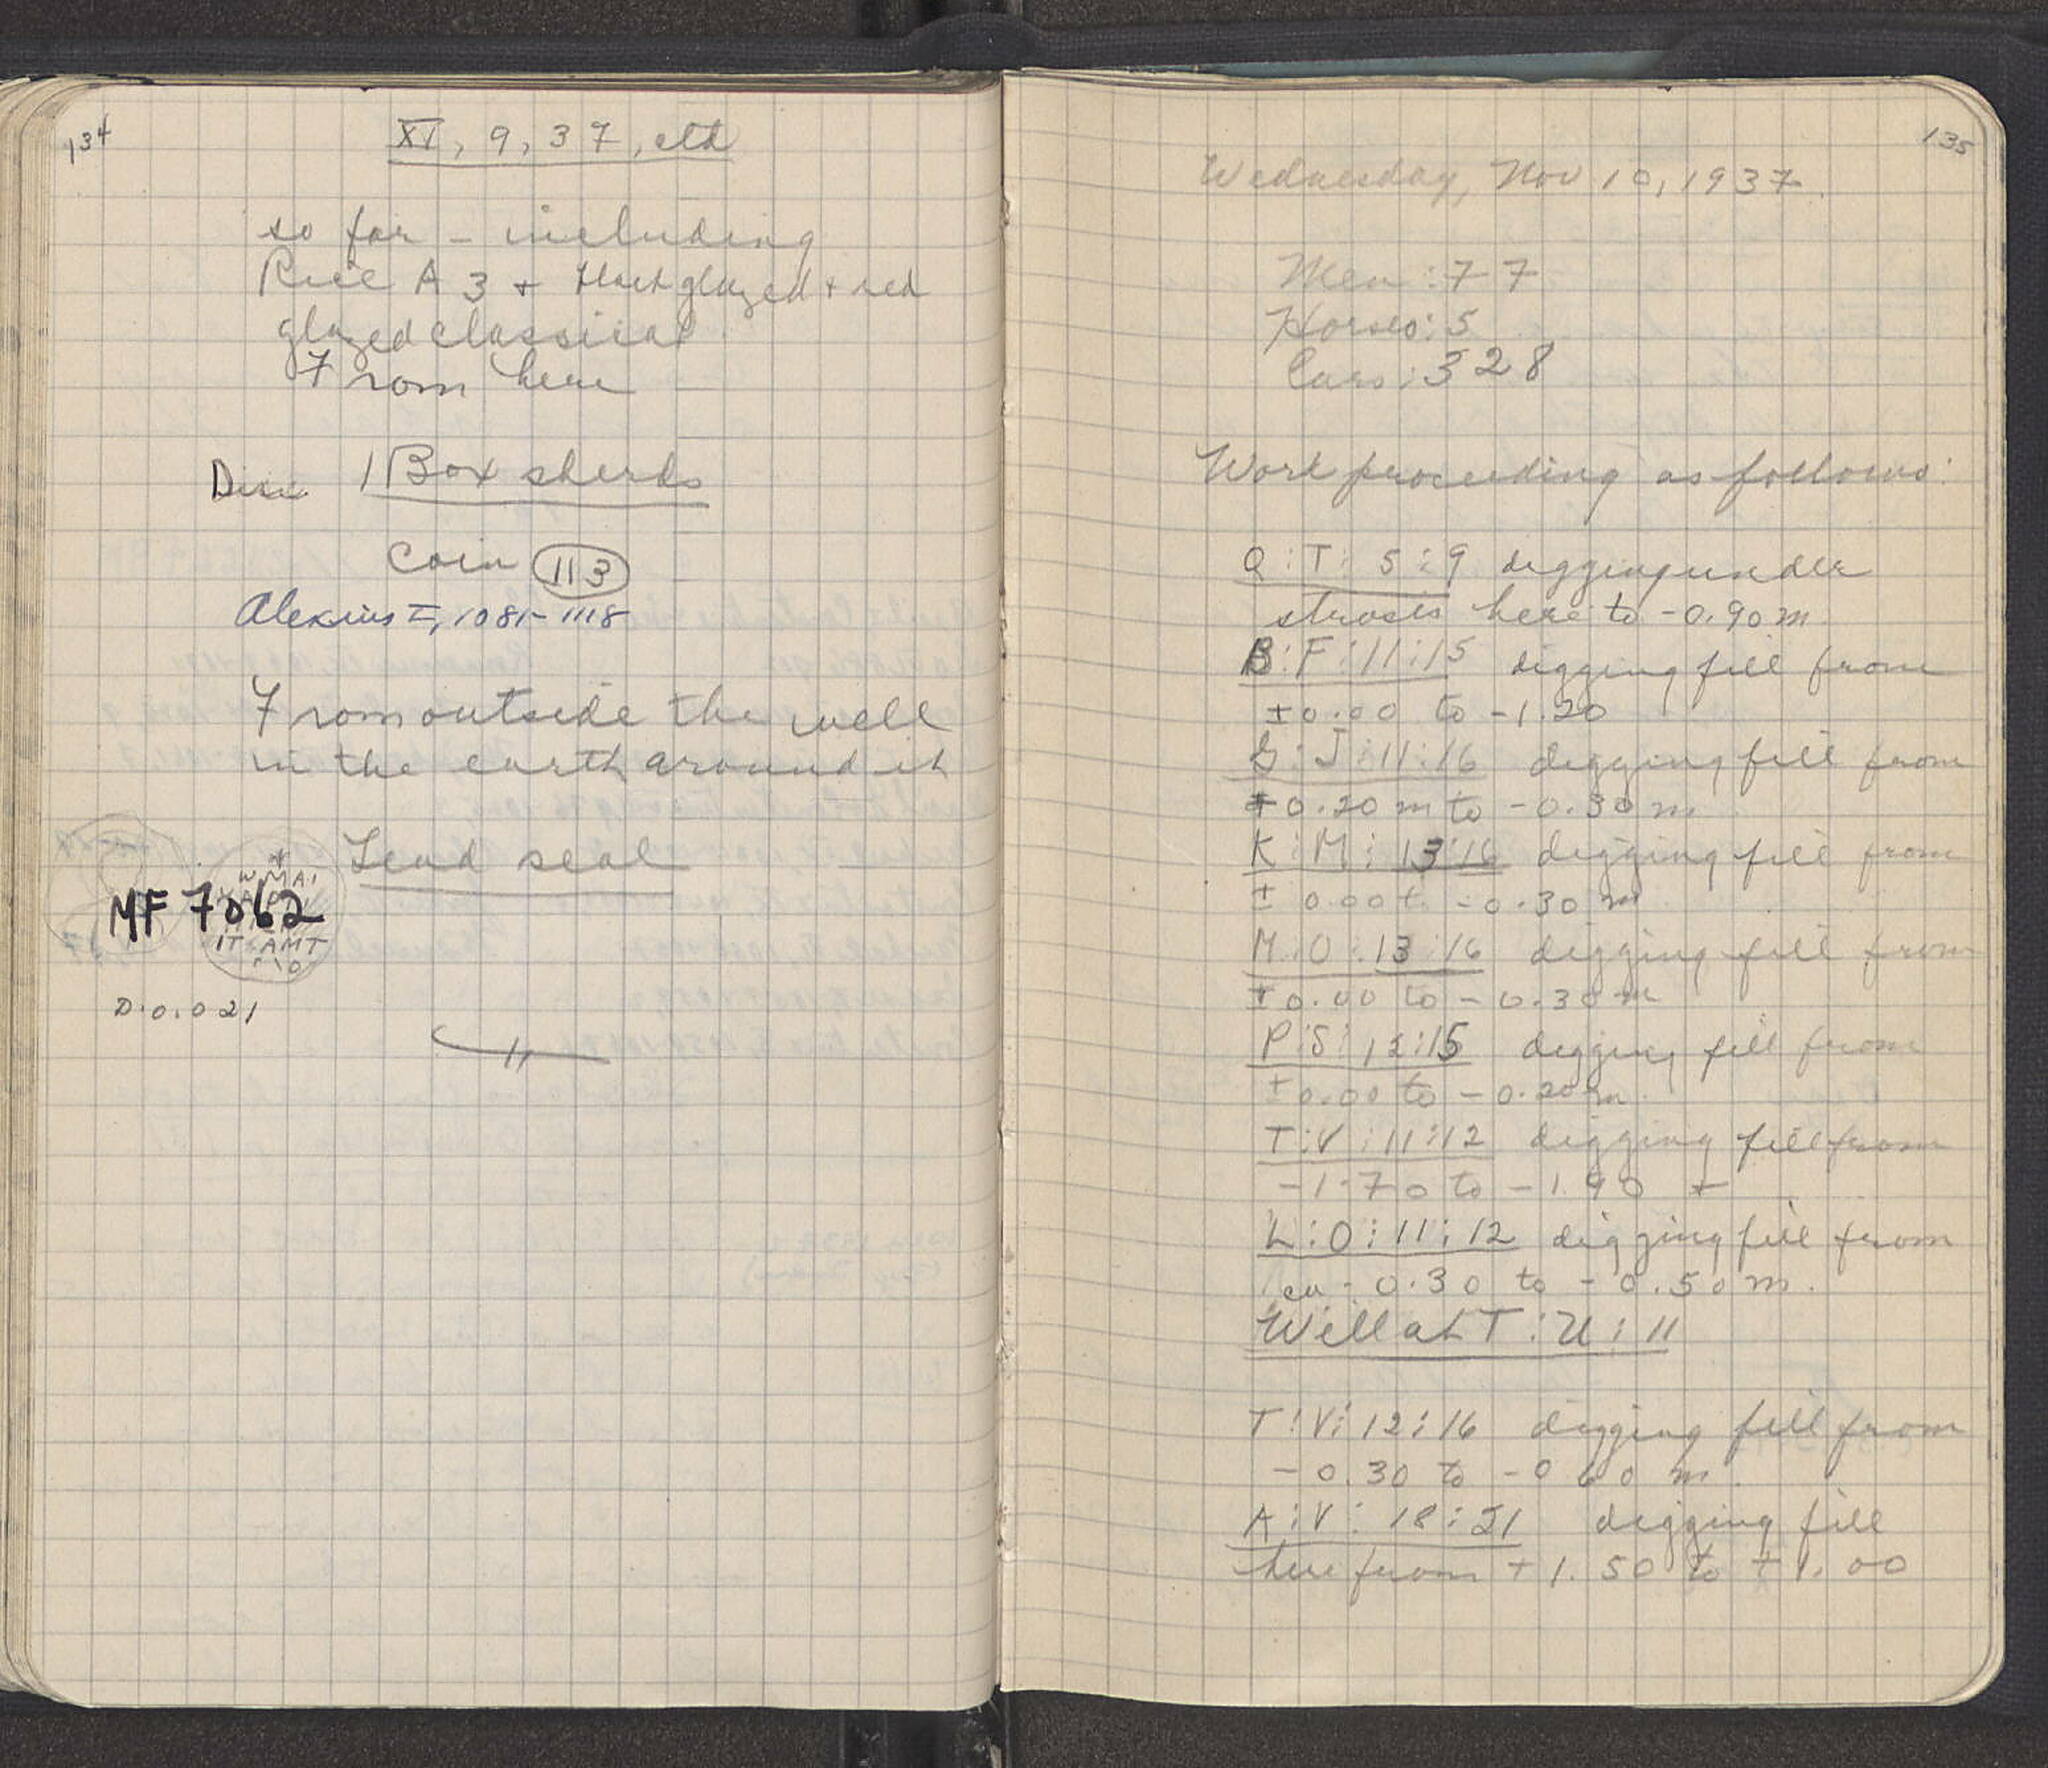 134
XI, 9, 37, ctd
so far – including
Rice A 3 + black glazed + red
glazed classical.
From here
Disc. 1 Box sherds
Coin 113
Alexius I, 1081–1118
From outside the well
in the earth around it
Lead seal
MF 7062
D.O. 021
135
Wednesday, Nov 10, 1937.
Men: 77
Horses: 5
Cars: 328
Work proceeding as follows:
Q:T: 5:9 digging under
strosis here to -0.90 m.
B:F:11:15 digging fill from
±0.00 to -1.20
G:J:11:16 digging fill from
+0.20 m to -0.30 m
K:M:13:16 digging fill from
±0.00 to -0.30 m
M:O:13:16 digging fill from
±0.00 to -0.30 m
P:S:12:15 digging fill from
±0.00 to -0.20 m.
T:V:11:12 digging fill from
-1.70 to -1.90 +
L:O:11:12 digging fill from
ca -0.30 to -0.50 m.
Well at T:U:11
T:V:12:16 digging fill from
-0.30 to -0.60 m.
A:V: 18:21 digging fill
here from +1.50 to +1.00